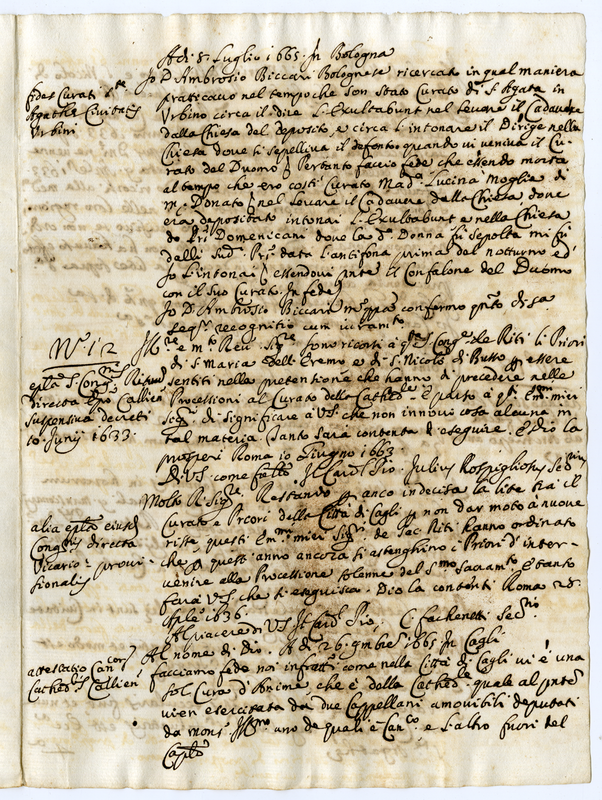 Adi 8. Luglio 1665. In Bologna
fides Curati Sᵗᵉ
Agathæ Civitatis
Urbini
Io D Ambrosio Biccari Bolognese ricercato in qual maniera
praticavo nel tempo che son stato Curato di S. Agata in
Urbino circa il dire l'Exultabunt nel levare il Cadavere
dalla Chiesa del deposito, e circa l'intonare il Dirige nella
Chiesa dove si sepelliva il defonto quando vi veniva il Cu-
rato del Duomo Pertanto faccio fede che essendo morta
al tempo che ero costì Curato Madᵃ Lucina Moglie di
mʳᵒ Donato nel levare il Cadavere dalla Chiesa dove
era depositato intonai l'Exultabunt e nella Chiesa
de PPri Domenicani dove la dᵃ Donna fu sepolta mi fu
dalli Sudⁱ PPri data l'antifona prima del notturno ed
Io l'intonai essendovi pnte il Confalone del Duomo
con il suo Curato. In fede
Io D. Ambrosio Biccari mᵒ ppᵃ confermo qnto di sᵃ
Seqʳ recognitio cum iuramᵗᵒ
Nº 12
Illʳᵉ e mᵗᵒ Revᵈᵒ Sigʳᵉ sono ricorsi a qᵃ S. Congⁿᵉ de Riti li Priori
epla S. Congⁿⁱˢ Rituum
directa Epo Callien
suspensiva decreti
10. Junij 1633.
di S. Maria dell'Eremo e di S. Nicolò di Busso essere
sentiti nella pretentione che hanno di precedere nelle
Processioni al Curato della Cathedˡᵉ È parso a qⁱ Emᵐⁱ miei
SSʳⁱ di significare a VS che non innovi cosa alcuna in
tal materia. Tanto sarà contenta d'eseguire. E Dio la
prosperi Roma 10 Giugno 1663.
Di VS. come fratˡᵒ Il Cardˡ Pio. Julius Rospigliosus Secʳⁱᵘˢ
alia epla eiusdᵐ
Congⁿⁱˢ directa
Vicario provi-
sionalis
Molto R. Sigʳᵉ Restando anco indecisa la lite tra il
Curato e Priori della Città di Cagli non dar moto à nuove
risse questi Emᵐⁱ miei Sigʳⁱ de Sac. Riti hanno ordinato
che quest'anno ancora si astenghino i Priori d'inter-
venire alla Processione solenne del Sᵐᵒ Sacramᵗᵒ E tanto
farà VS. che si eseguisca. Dio la contenti Roma 28.
Aple 1636.
Al piacere di VS Il Cardˡ Pio, C. Fachenetti Secʳⁱᵒ
attestatio Canᶜᵒʳ
Cathedˡⁱˢ Callien
Al nome di Dio. Adi 26. 9mbre 1665 In Cagli
facciamo fede noi infratti come nella Città di Cagli vi è una
sol Cura d'Anime che è dalla Cathedˡᵉ quale al pnte
vien esercitata da due Cappellani amovibili deputati
da Monsʳ Illᵐᵒ uno de quali è Canᶜᵒ e l'altro fuori del
Caplo